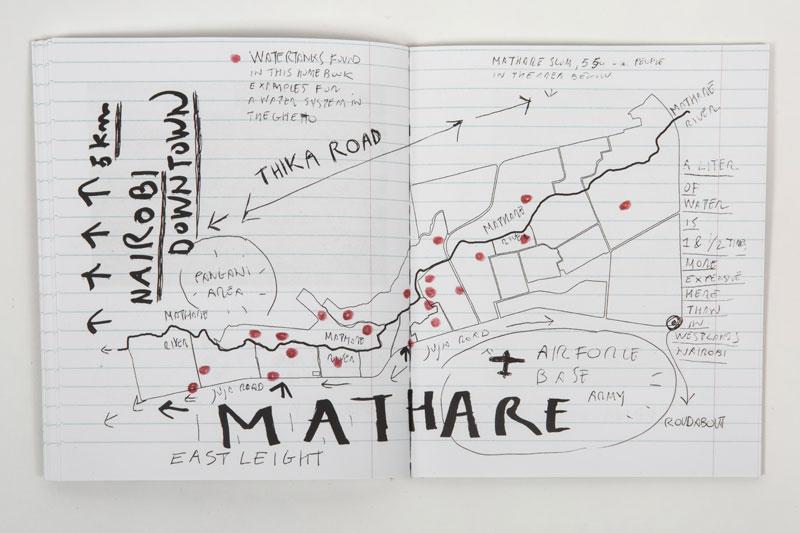 WATERTANKS FOUND
IN THIS HOMEBOOK
EXAMPLES FOR
A WATER SYSTEM IN
THE GHETTO
MATHARE SLUM, PEOPLE
IN THE AREA BELOW
5 km
NAIROBI
DOWNTOWN
THIKA ROAD
MATHARE
RIVER
PANGANI
AREA
MATHARE
RIVER
MATHARE
RIVER
MATHARE
RIVER
JUJA ROAD
JUJA ROAD
A LITER
OF
WATER
IS
1 & 1/2 TIMES
MORE
EXPENSIVE
HERE
THAN
IN
WESTLANDS
NAIROBI
AIRFORCE
BASE
ARMY
ROUNDABOUT
MATHARE
EAST LEIGHT